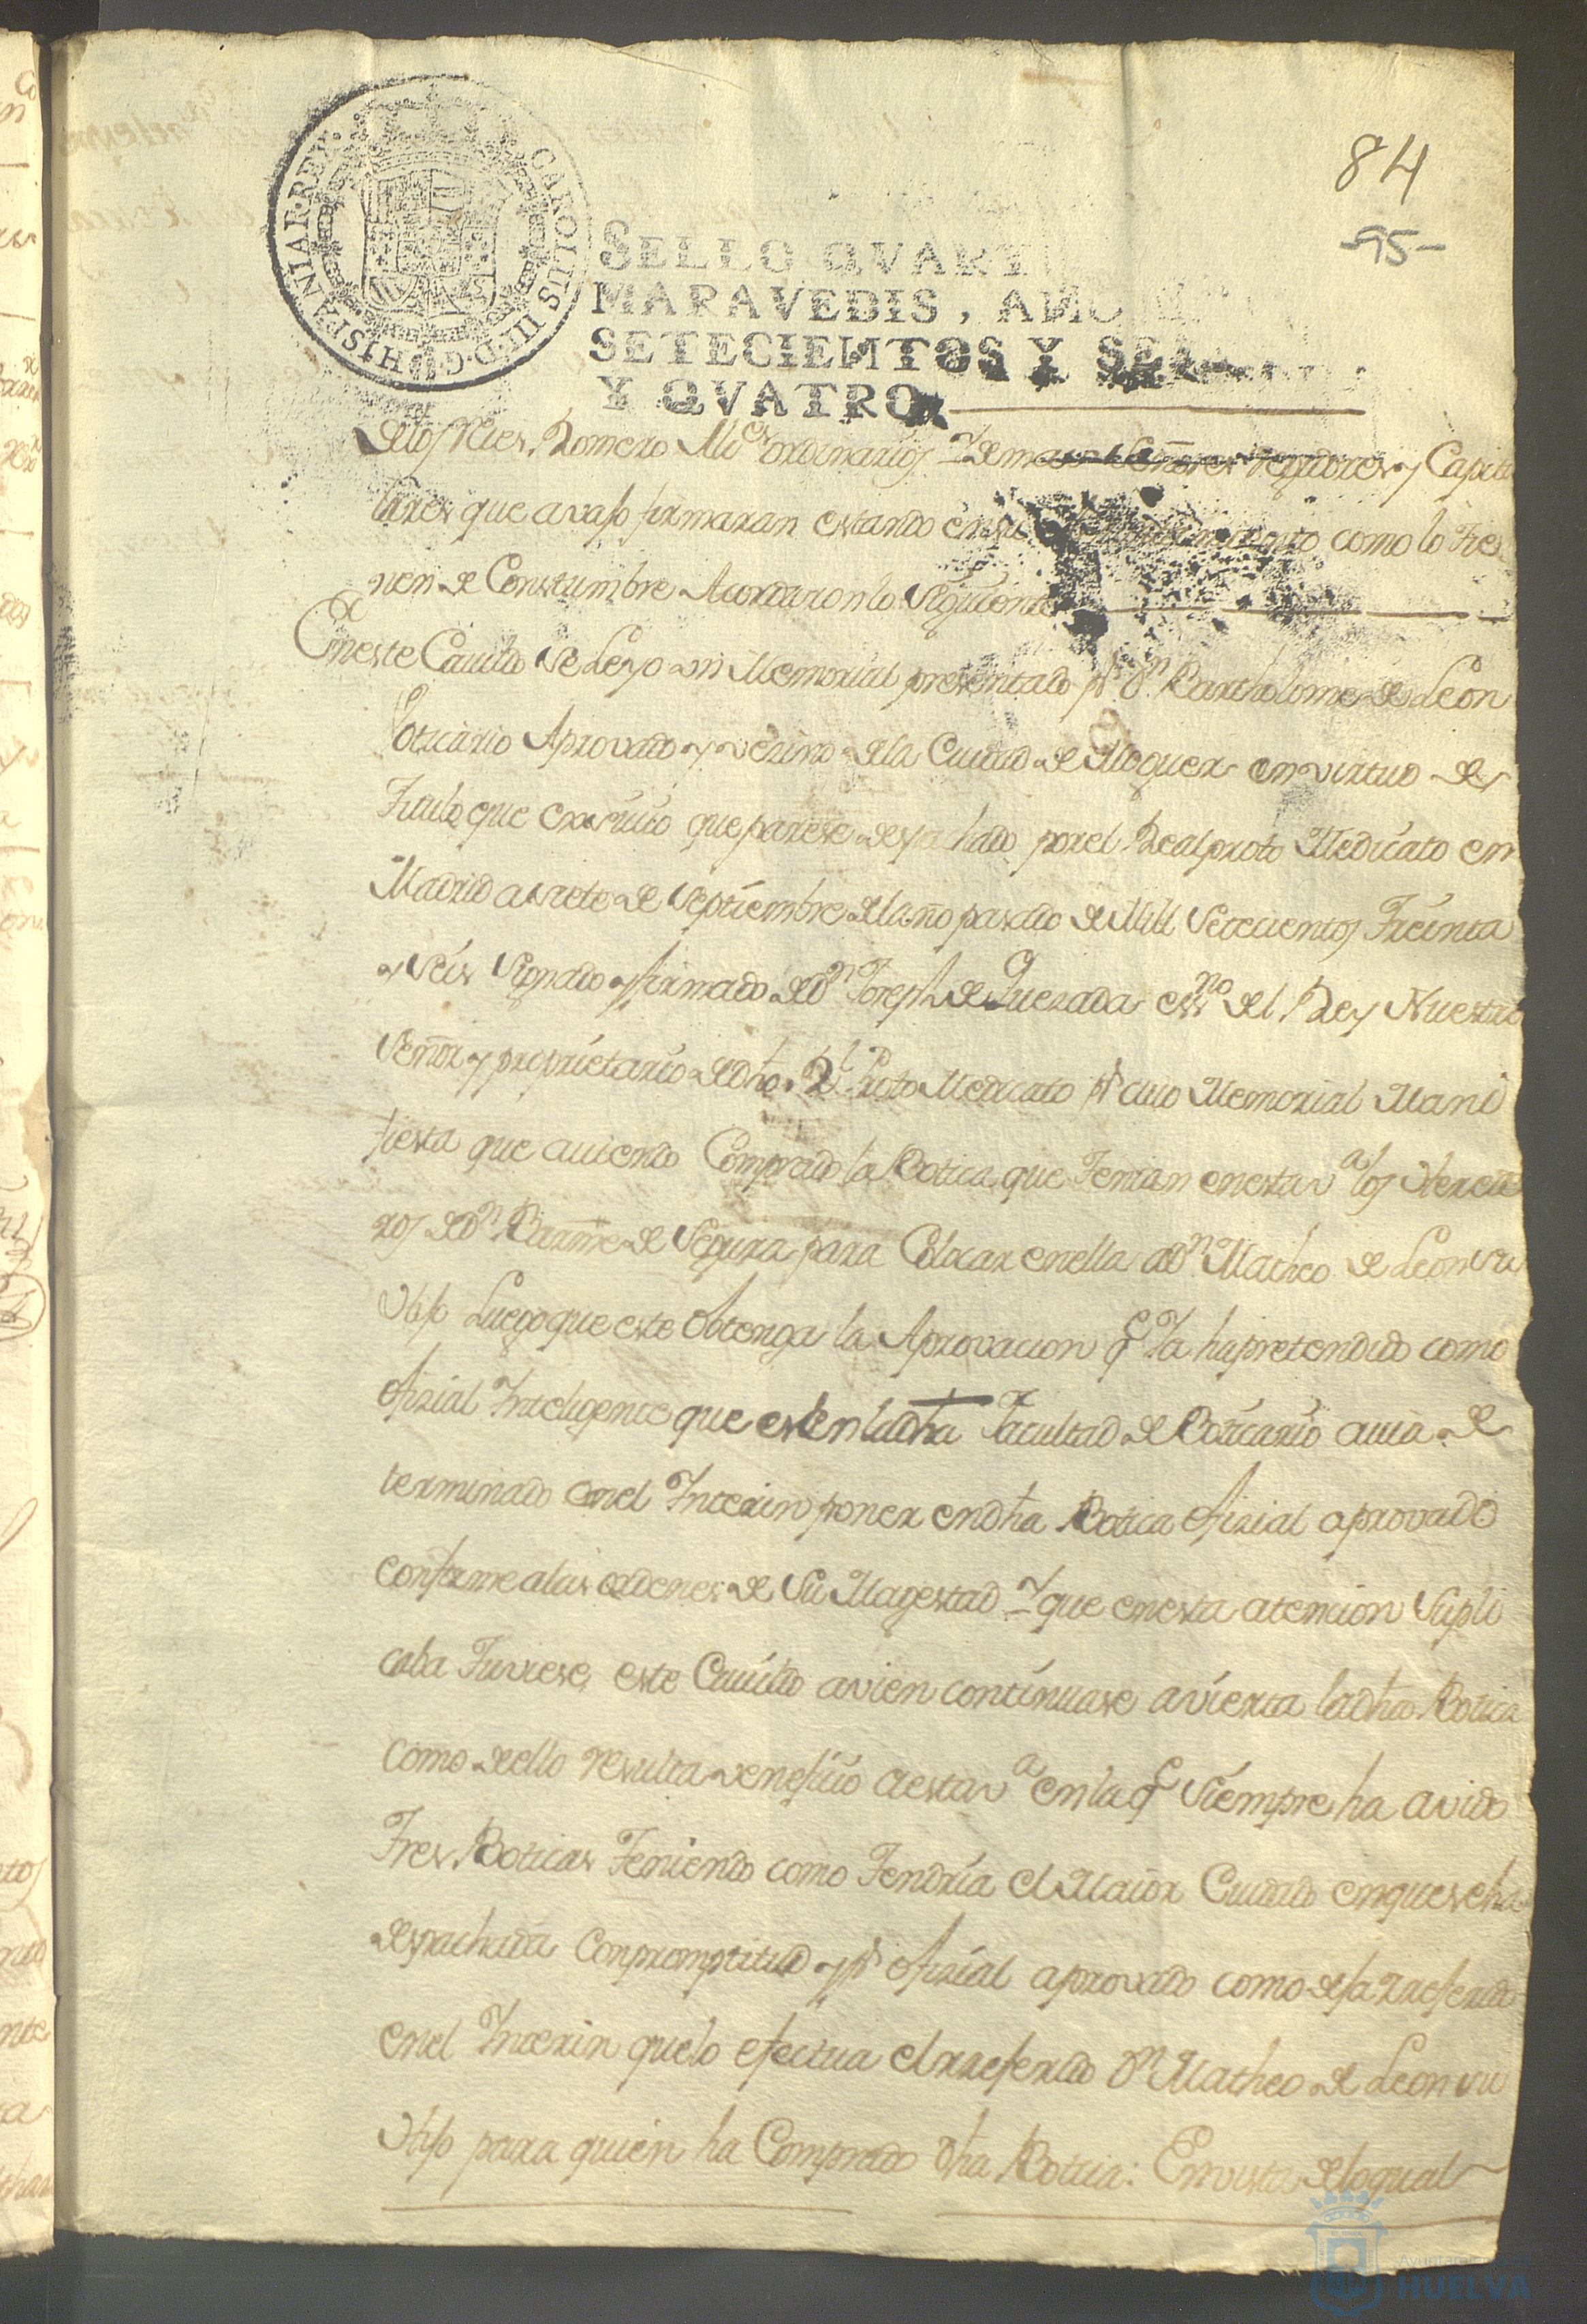 84
-95-
CAROLUS III D.G. HISPANIAR. REX.
SELLO QVARTO
MARAVEDIS, AÑO
SETECIENTOS Y SE
Y QVATRO.
Romero Alces ordinarios y demas Señores Regidores y Capitu
lares que avajo firmaran estando en su como lo Tie
nen de Constumbre Acordaron lo Siguiente
En este Cavildo se Leyo un Memorial presentado pr Dn Bartholome de Leon
Boticario Aprovado y vezino de la Ciudad de Moguer en virtud de
Titulo que exsivio que parese despachado por el Real proto Medicato en
Madrid a siete de Septiembre del año pasado de Mill Setecientos Treinta
y Seis Signado y firmado de Dn Joseph de Quezada essno del Rey Nuestro
Señor y proprietario de dho Rl Proto Medicato pr cuio Memorial Mani
fiesta que aviendo Comprado la Botica que Tenian en esta va los Herede
ros de Dn Barme de Segura para Colocar en ella a Dn Matheo de Leon su
Hijo Luego que este Obtenga la Aprovacion qe Ya ha pretendido como
ofizial Inteligente que es en la dha Facultad de Boticario avia de
terminado en el Interin poner en dha Botica ofizial aprovado
conforme a las ordenes de Su Magestad Y que en esta atencion Supli
caba Tuviese este Cavildo avien continuase avierta la dha Botica
como de ello resulta veneficio a esta va en la qe Siempre ha avido
Tres Boticas Teniendo como Tendria el Maior Cuidado en que se ha
despachada Con promptitud y pr ofizial aprovado como deja rreferido
en el Interin que lo efectua el rreferido Dn Matheo de Leon su
Hijo para quien ha Comprado dha Botica: En vista de lo qual
Ayuntamiento
HUELVA